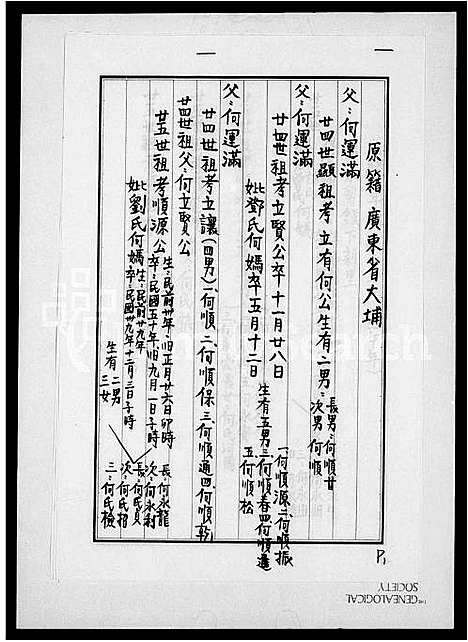 原籍 廣東省大埔
父:何運滿
廿四世顯祖考立有何公生有二男:
長男:何順廿
次男 何順
父:何運滿
廿四世祖考立賢公卒十一月廿八日
妣鄧氏何媽卒五月十二日
生有五男
一、何順源二、何順振
三何順春四何順進
五何順松
父:何運滿
廿四世祖考立讓(四男)一、何順二、何順保三、何順通四、何順乾
廿四世祖父:何立賢公
廿五世祖考順源公
生:民前卅年舊正月廿六日卯時
卒:民國五十年舊九月一日子時
妣劉氏何媽
生:民前廿九年
卒:民國卅九年十二月三日子時
生有二男
三女
長:何永龍
次:何永利
長:何氏員
次:何氏招
三:何氏檢
P1
THE GENEALOGICAL
SOCIETY